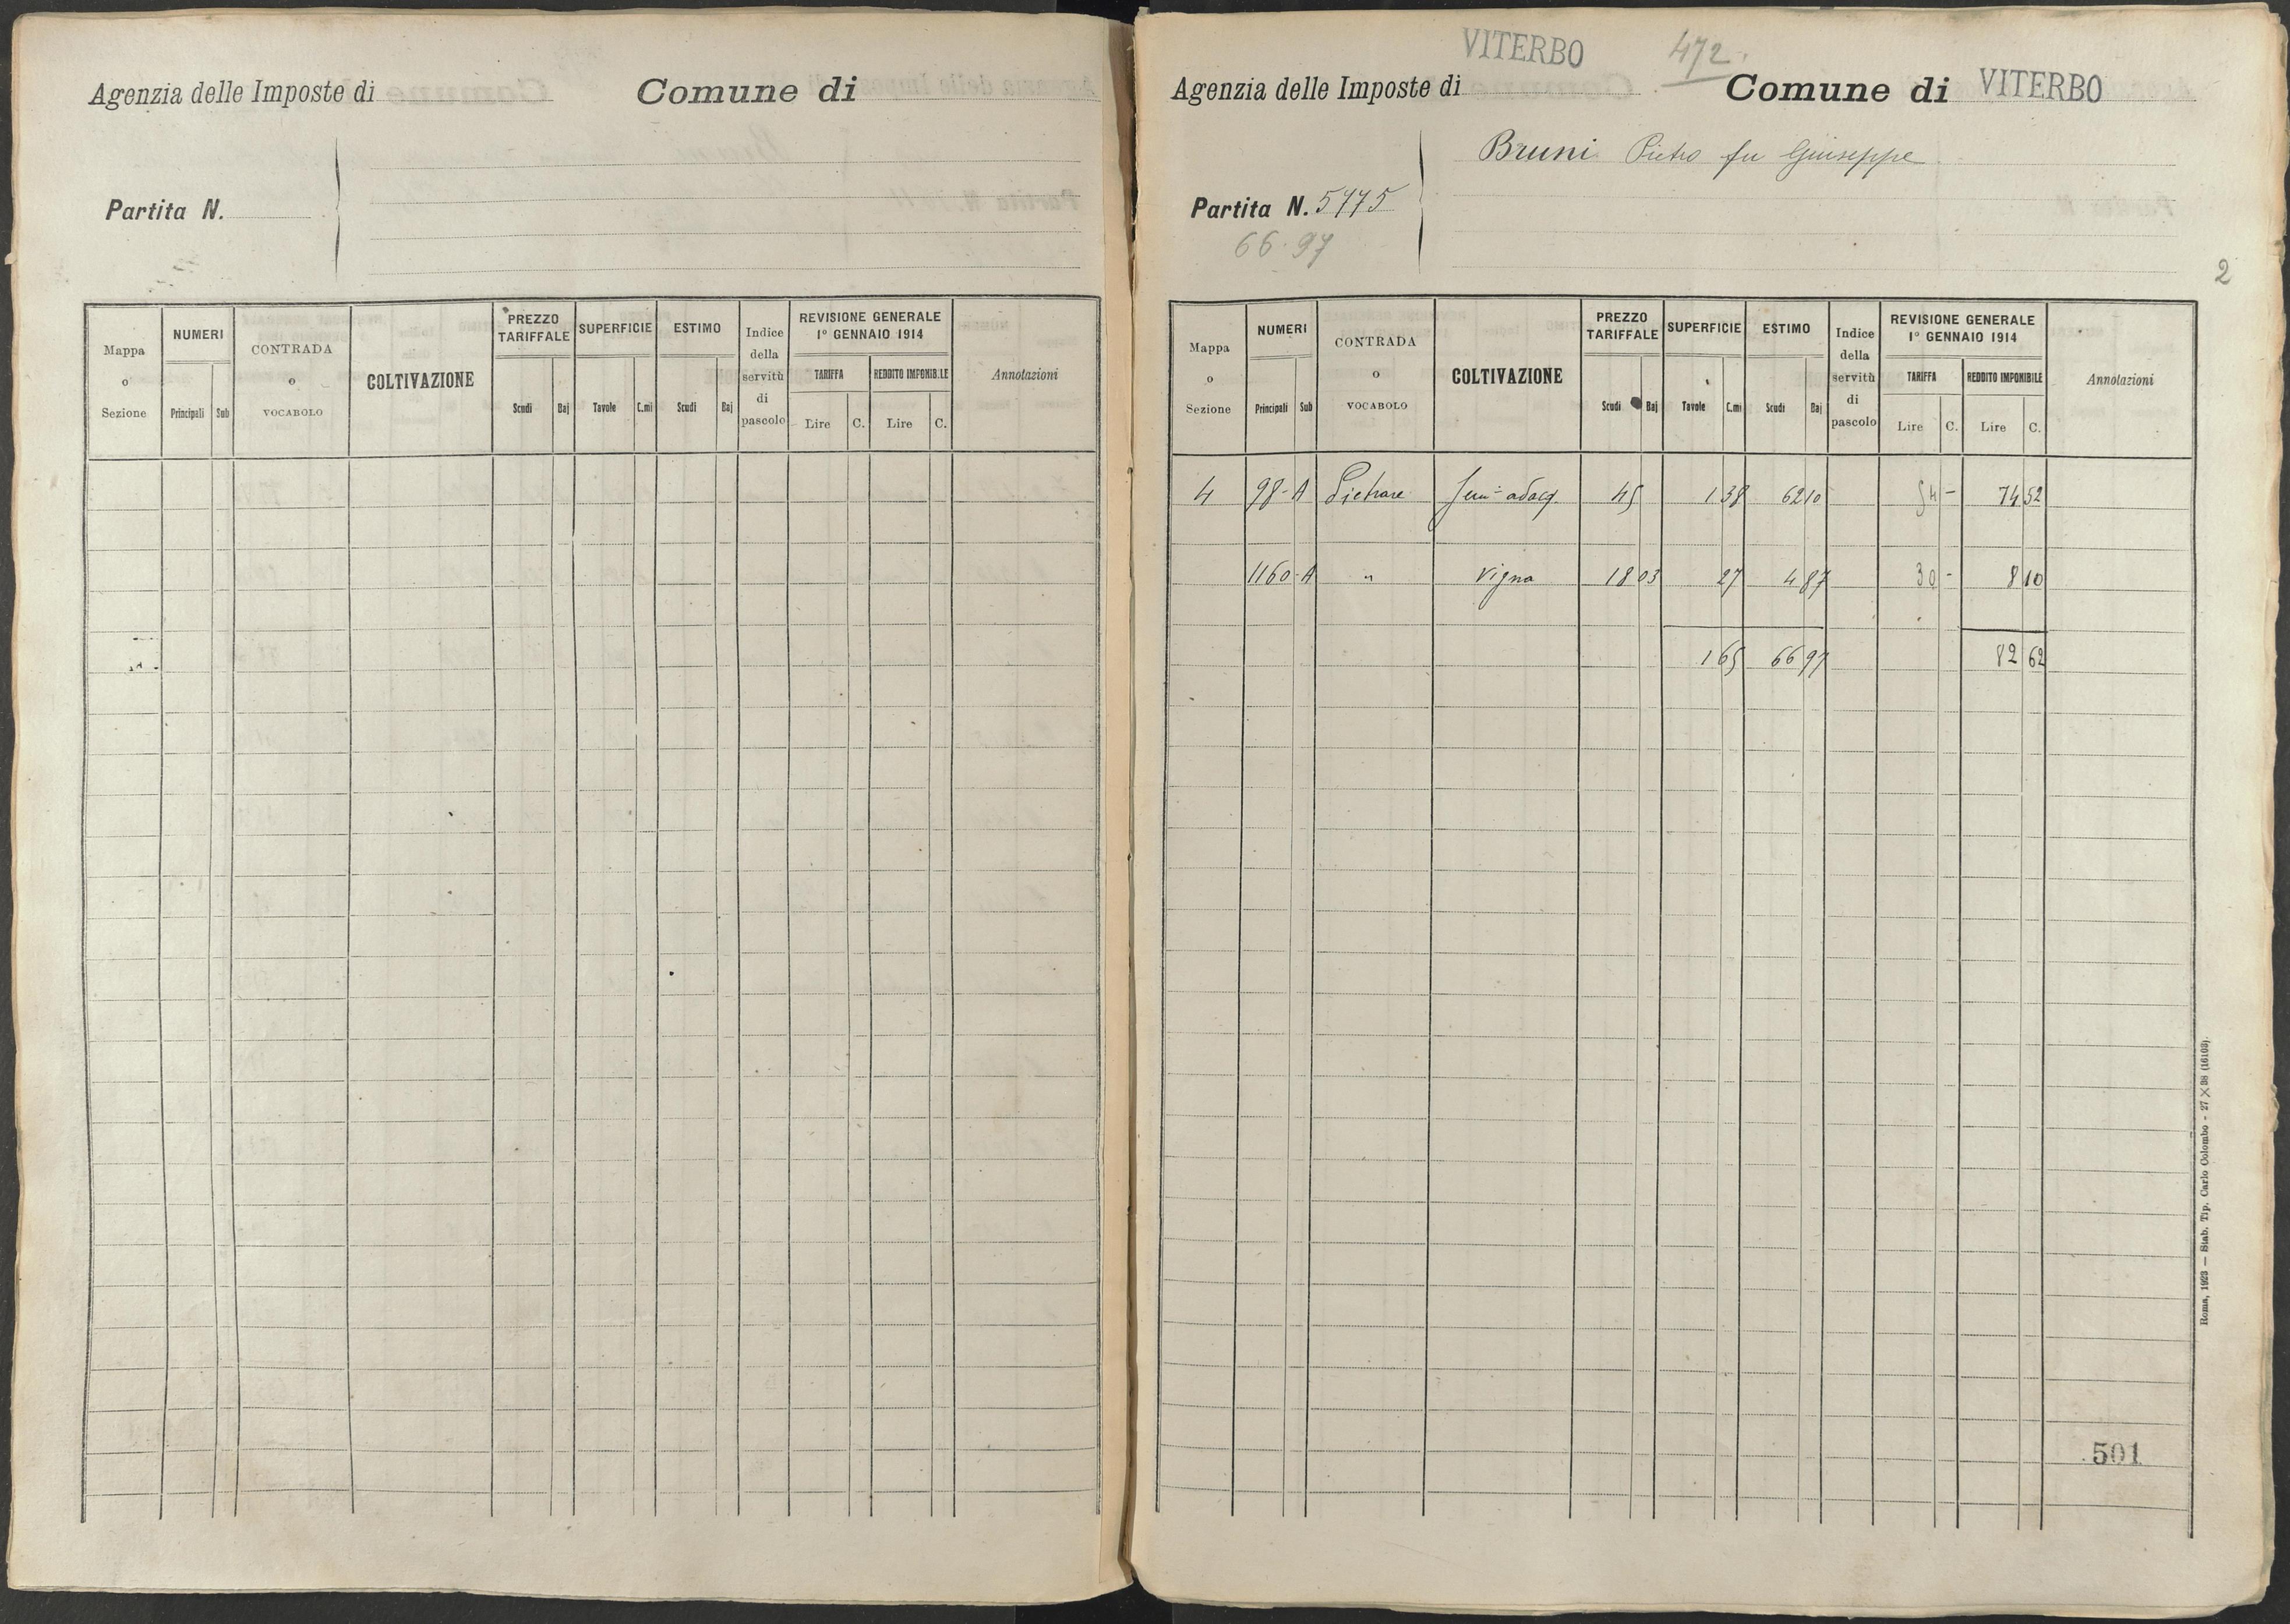 Agenzia delle Imposte di
Comune di
Partita N.
Mappa o Sezione
NUMERI
Principali Sub
CONTRADA o VOCABOLO
COLTIVAZIONE
PREZZO TARIFFALE
Scudi Baj
SUPERFICIE
Tavole C.mi
ESTIMO
Scudi Baj
Indice della servitù di pascolo
REVISIONE GENERALE
1° GENNAIO 1914
TARIFFA
Lire C.
REDDITO IMPONIB.LE
Lire C.
Annotazioni
VITERBO
472.
Agenzia delle Imposte di
Comune di VITERBO
Bruni Pietro fu Giuseppe
Partita N. 5775
66.97
2
Mappa o Sezione
NUMERI
Principali Sub
CONTRADA o VOCABOLO
COLTIVAZIONE
PREZZO TARIFFALE
Scudi Baj
SUPERFICIE
Tavole C.mi
ESTIMO
Scudi Baj
Indice della servitù di pascolo
REVISIONE GENERALE
1° GENNAIO 1914
TARIFFA
Lire C.
REDDITO IMPONIBILE
Lire C.
Annotazioni
4 98-A Pietrare Sem.° adacq. 45 1 38 62 10 54 - 74 52
1160-A " Vigna 18 03 27 4 87 30 - 8 10
1 65 66 97 82 62
501
Roma, 1923 — Stab. Tip. Carlo Colombo - 27 X 38 (16103).